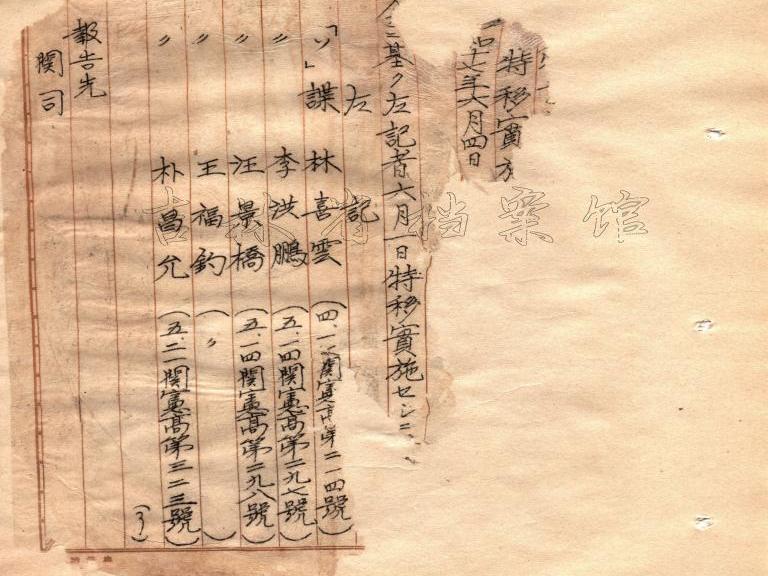 特移實
昭十七年六月四日
基ク左記者六月一日特移實施セシニ
左記
「ソ」諜 林喜雲 (四、一 関憲高第二一四號)
〃 李洪鵬 (五、一四関憲高第二九七號)
〃 汪景橋 (五、一四関憲高第二九八號)
〃 王福釣 ( 〃 )
〃 朴昌允 (五、二一関憲高第三二三號)
(了)
報告先
関司
吉林省档案馆